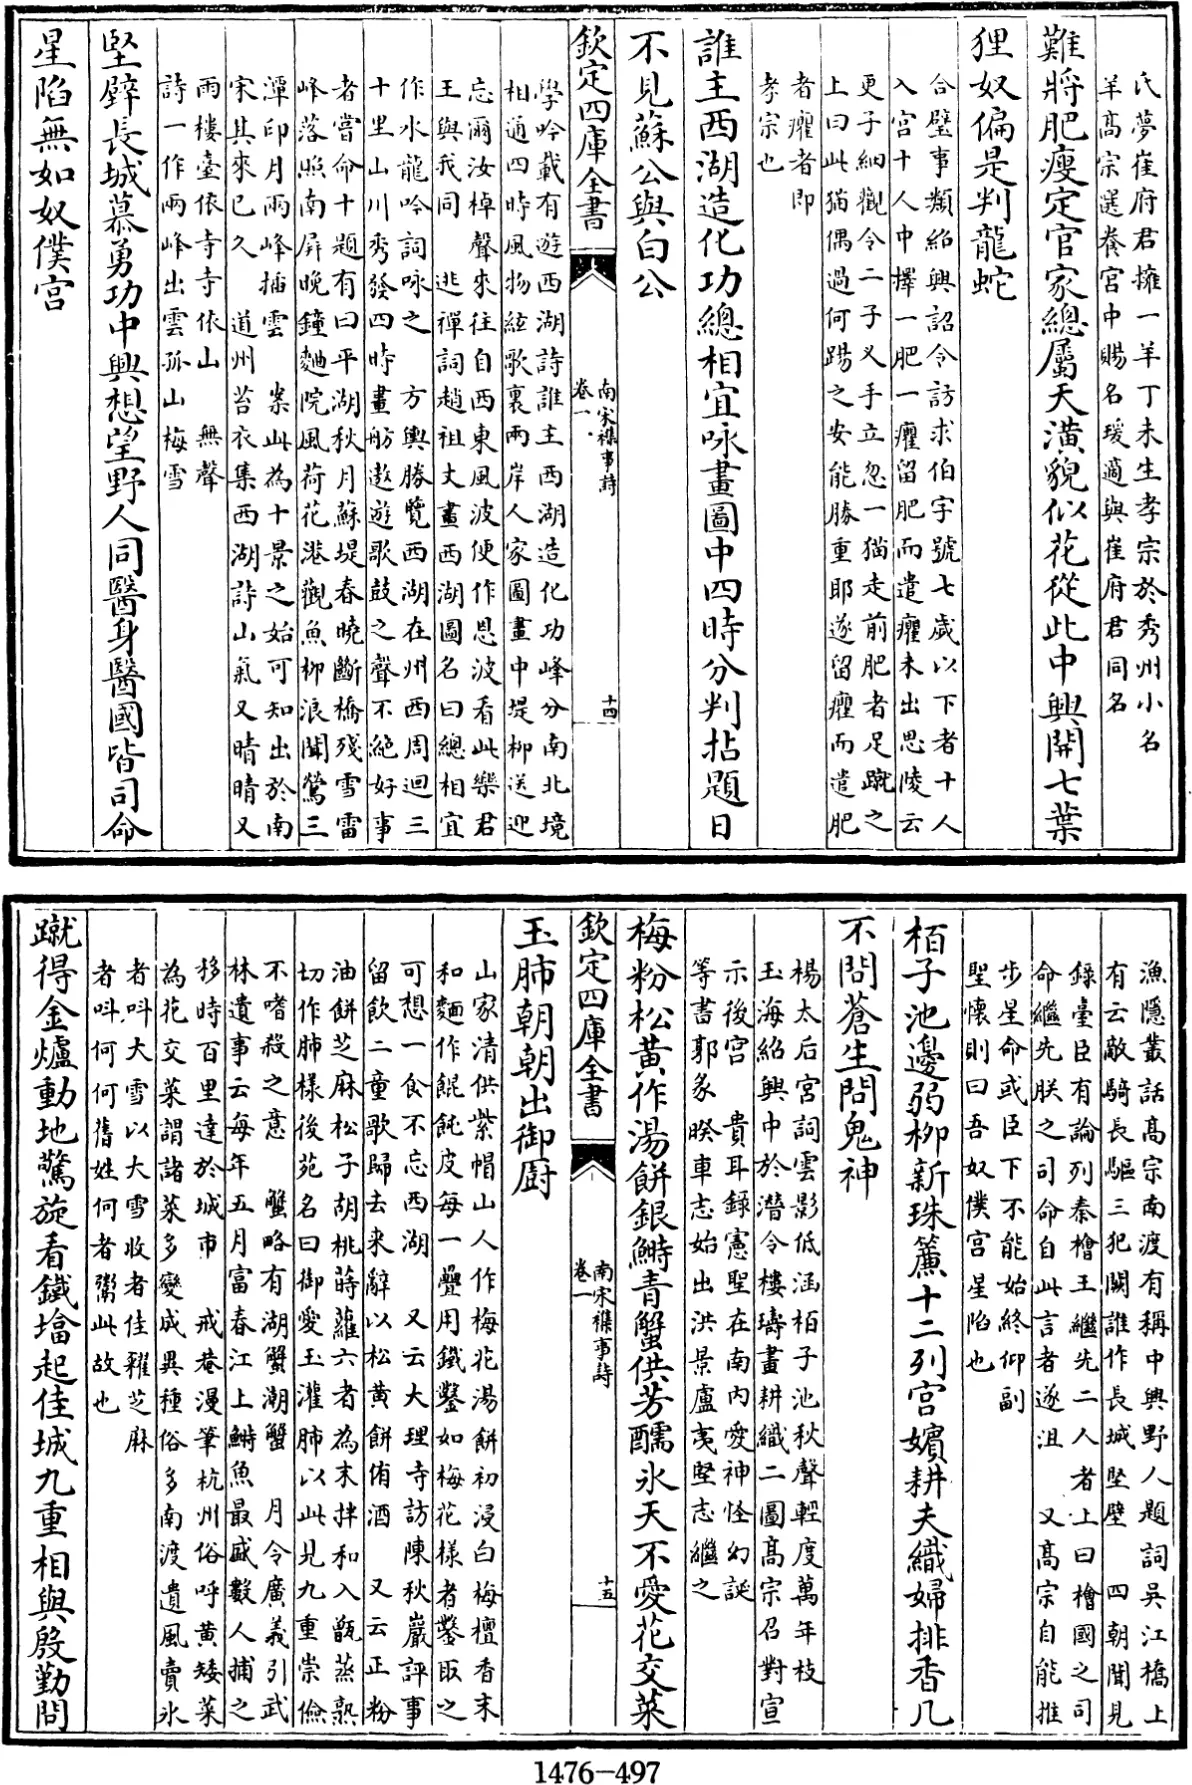 氏夢崔府君擁一羊丁未生孝宗於秀州小名
羊高宗選養宮中賜名瑗適與崔府君同名
難將肥瘦定官家總屬天潢貌似花從此中興開七葉
狸奴偏是判龍蛇
合璧事類紹興詔令訪求伯字號七歲以下者十人
入宮十人中擇一肥一癯留肥而遣癯未出思陵云
更子細觀令二子叉手立忽一猫走前肥者足蹴之
上曰此猫偶過何踢之安能勝重耶遂留癯而遣肥
者癯者即
孝宗也
誰主西湖造化功總相宜咏畫圖中四時分判拈題日
不見蘇公與白公
欽定四庫全書
南宋襍事詩
卷一
十四
學吟載有遊西湖詩誰主西湖造化功峰分南北境
相通四時風物絃歌裏兩岸人家圖畫中堤柳送迎
忘爾汝棹聲來往自西東風波便作恩波看此樂君
王與我同　逃禪詞趙祖文畫西湖圖名曰總相宜
作水龍吟詞咏之　方輿勝覽西湖在州西周迴三
十里山川秀發四時畫舫遨遊歌鼓之聲不絕好事
者嘗命十題有曰平湖秋月蘇堤春曉斷橋殘雪雷
峰落照南屏晚鐘麯院風荷花港觀魚柳浪聞鶯三
潭印月兩峰插雲　案此為十景之始可知出於南
宋其來已久　道州苔衣集西湖詩山氣又晴晴又
雨樓臺依寺寺依山　無聲
詩一作兩峰出雲孤山梅雪
堅壁長城慕勇功中興想望野人同醫身醫國皆司命
星陷無如奴僕宮
漁隱叢話高宗南渡有稱中興野人題詞吳江橋上
有云敵騎長驅三犯闕誰作長城堅壁　四朝聞見
錄臺臣有論列秦檜王繼先二人者上曰檜國之司
命繼先朕之司命自此言者遂沮　又高宗自能推
步星命或臣下不能始終仰副
聖懷則曰吾奴僕宮星陷也
栢子池邊弱柳新珠簾十二列宮嬪耕夫織婦排香几
不問蒼生問鬼神
楊太后宮詞雲影低涵栢子池秋聲輕度萬年枝
玉海紹興中於潛令樓璹畫耕織二圖高宗召對宣
示後宮　貴耳錄憲聖在南内愛神怪幻誕
等書郭彖暌車志始出洪景盧夷堅志繼之
梅粉松黃作湯餅銀鰣青蟹供芳醹氷天不愛花交菜
欽定四庫全書
南宋襍事詩
卷一
十五
玉肺朝朝出御厨
山家清供紫帽山人作梅花湯餅初浸白梅檀香末
和麵作餛飩皮每一疊用鐵鑿如梅花様者鑿取之
可想一食不忘西湖　又云大理寺訪陳秋巖評事
留飲二童歌歸去來辭以松黃餅侑酒　又云正粉
油餅芝麻松子胡桃蒔蘿六者為末拌和入甑蒸熟
切作肺様後苑名曰御愛玉灌肺以此見九重崇儉
不嗜殺之意　蟹略有湖蟹潮蟹　月令廣義引武
林遺事云每年五月富春江上鰣魚最盛數人捕之
移時百里達於城市　戒巷漫筆杭州俗呼黃矮菜
為花交菜謂諸菜多變成異種俗多南渡遺風賣氷
者叫大雪以大雪收者佳糴芝麻
者叫何何舊姓何者鬻此故也
蹴得金爐動地驚旋看鐵墖起佳城九重相與殷勤問
1476-497